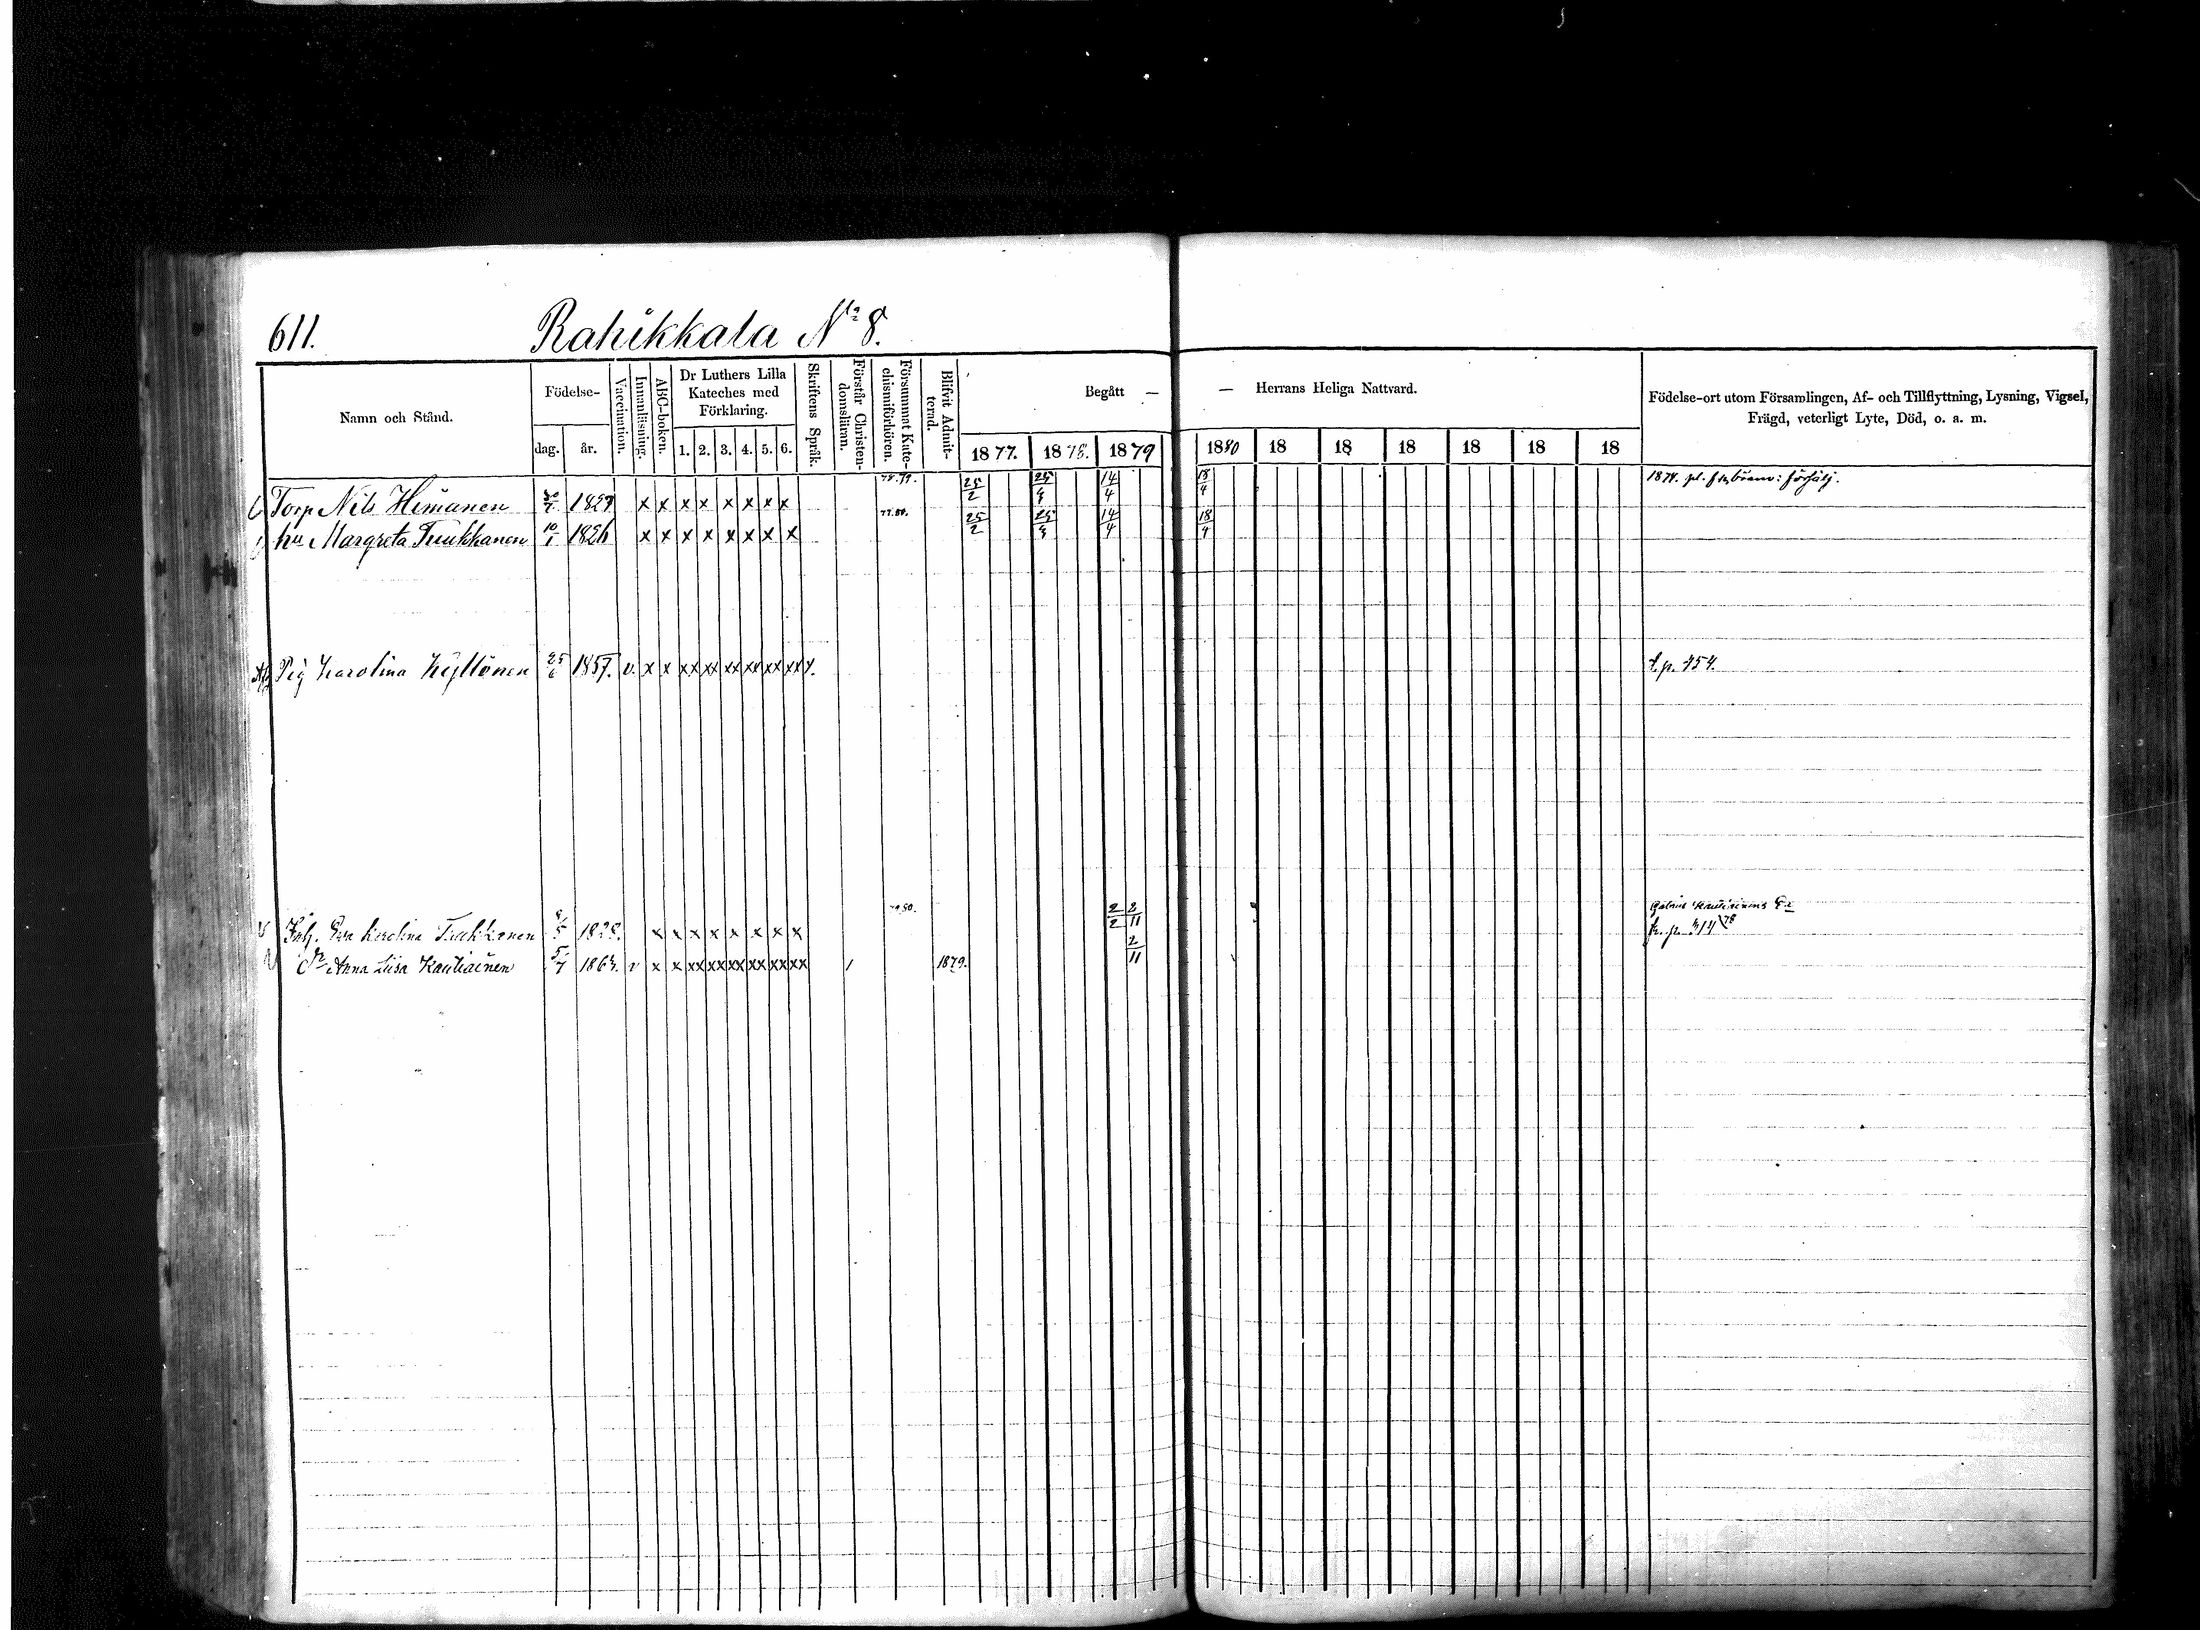 611. Rahikkala No 8.
Namn och Stånd. Födelse- Vaccination. Innanläsning. ABC-boken. Dr Luthers Lilla Kateches med Förklaring. Skriftens Språk. Förstår Christendomsläran. Försummat Katechismiförhören. Blifvit Admitterad. Begått — — Herrans Heliga Nattvard. Födelse-ort utom Församlingen, Af- och Tillflyttning, Lysning, Vigsel, Frägd, veterligt Lyte, Död, o. a. m.
dag. år. 1. 2. 3. 4. 5. 6. 1877. 1878. 1879 1880 18 18 18 18 18 18
Torp Nils Himanen 1829 x x x x x x x x 78.79. 25/2 14/4 18/4
hu Margreta Tiukkanen 10/1 1826 x x x x x x x x 77.80. 25/2 14/4 18/4
Pig Karolina Kyllönen 25/6 1857. v. x x xx xx xx xx xx xx t.p. 454.
Inh. Eva Karolina Tiukkanen 1828. x x x x x x x x 2/2 2/11 fr. p. 314 78
Dr Anna Liisa Kautiainen 5/7 1863. v x x xx xx xx xx xx xx 1 1879. 2/11